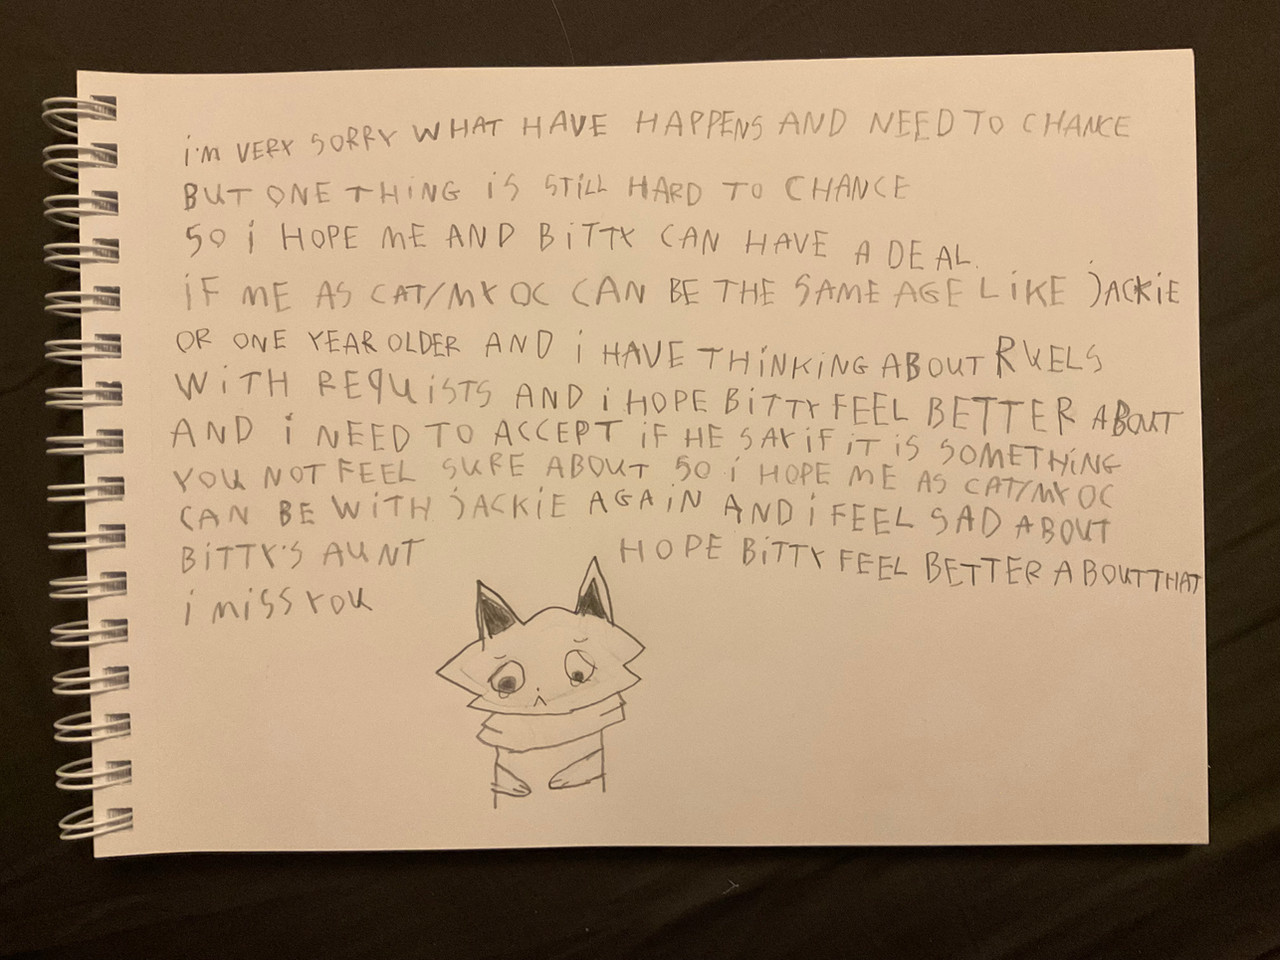 i'M VERY SORRY WHAT HAVE HAPPENS AND NEED TO CHANCE
BUT ONE THING iS STiLL HARD TO CHANCE
SO i HOPE ME AND BiTTY CAN HAVE A DEAL.
iF ME AS CAT/MY OC CAN BE THE SAME AGE LiKE jACKiE
OR ONE YEAR OLDER AND i HAVE THiNKiNG ABOUT RUELS
WiTH REQUiSTS AND i HOPE BiTTY FEEL BETTER ABOUT
AND i NEED TO ACCEPT iF HE SAY iF iT iS SOMETHiNG
YOU NOT FEEL SURE ABOUT SO i HOPE ME AS CAT/MY OC
CAN BE WiTH jACKiE AGAiN AND i FEEL SAD ABOUT
BiTTY'S AUNT HOPE BiTTY FEEL BETTER ABOUT THAT
i MiSS YOU